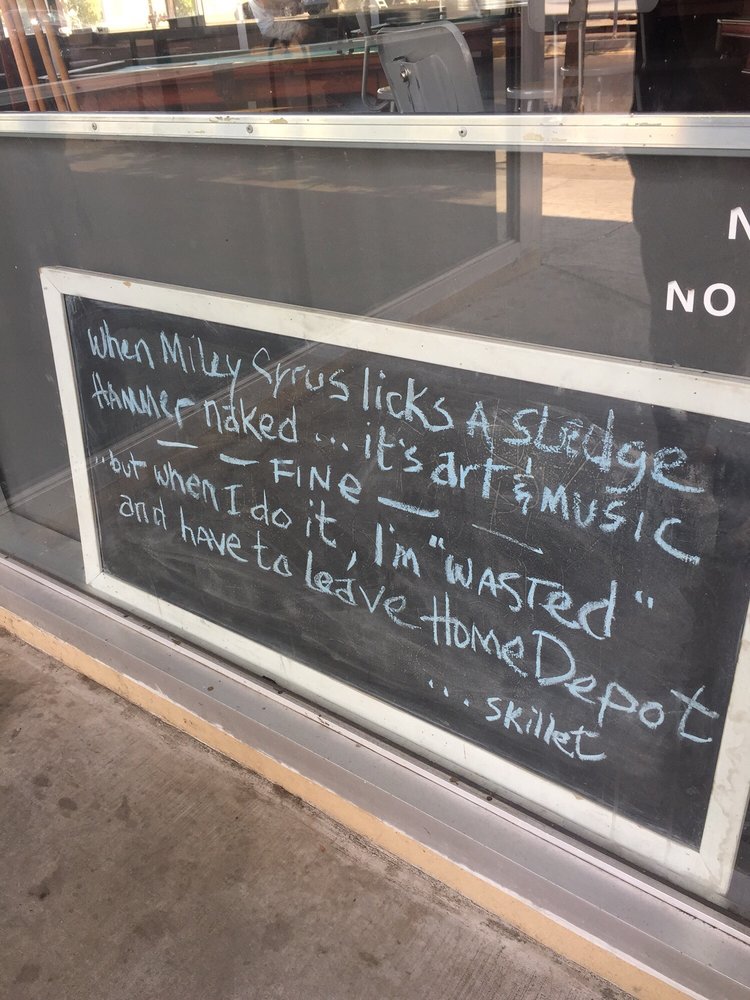 N
NO
when Miley Cyrus licks A sledge
HAMMer naked ... it's art & MUSIC
— — FINe — —
...but when I do it, I'm "WASTed"
and HAVe to leave Home Depot
... skillet